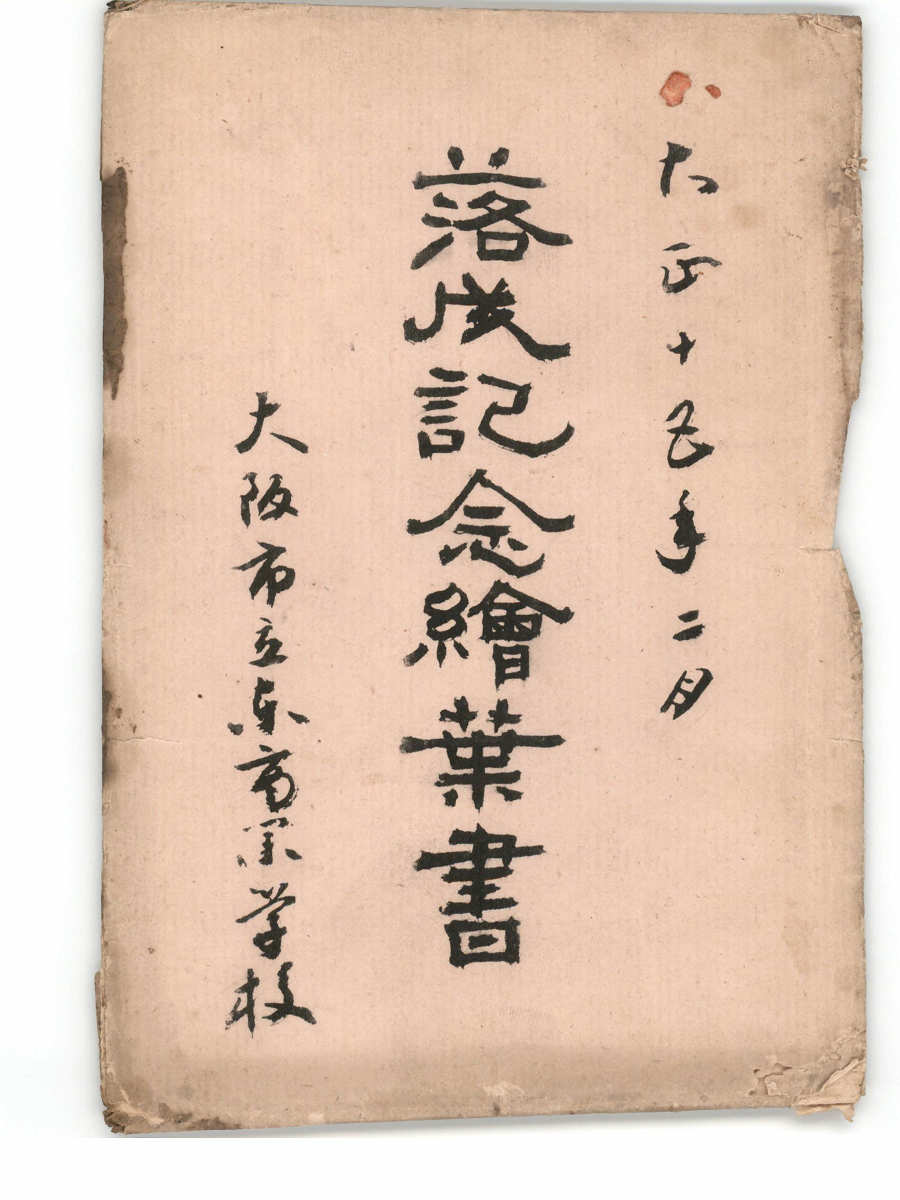 大正十五年二月
落成記念繪葉書
大阪市立東商業学校